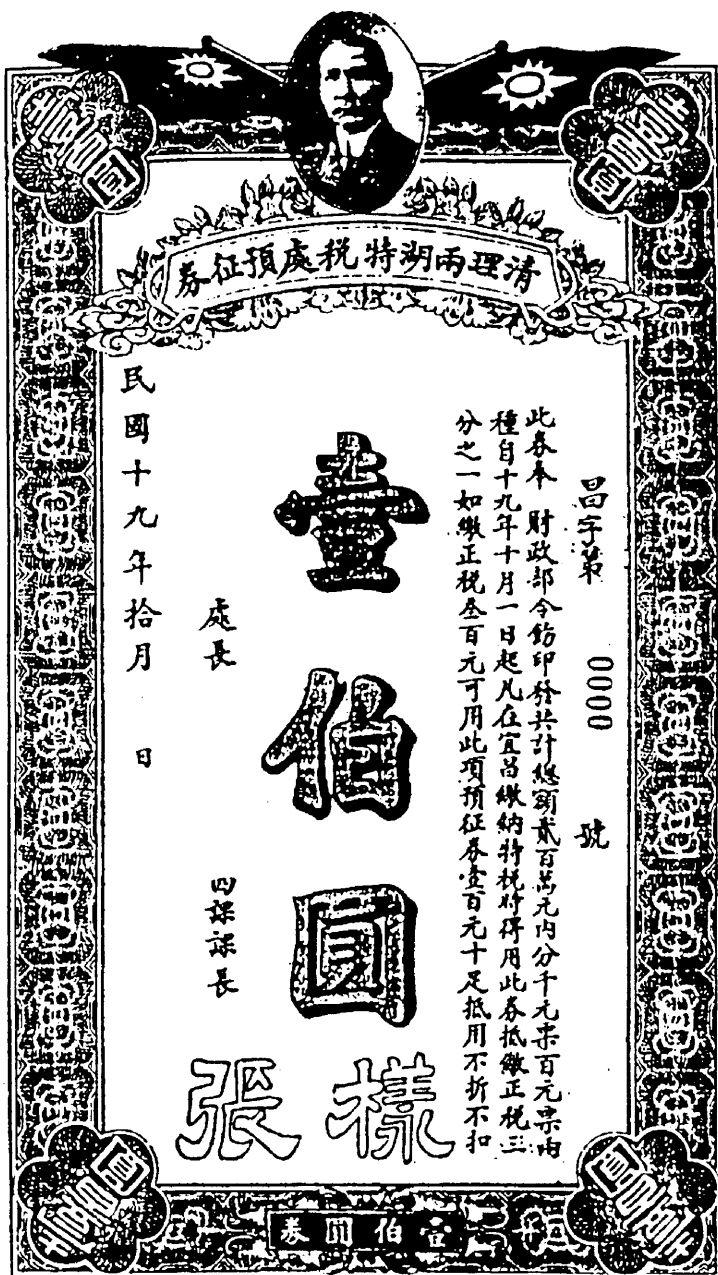 清理兩湖特稅處預征券
昌字第 0000 號
此券奉 財政部令飭印發共計總額貳百萬元內分千元票百元票兩
種自十九年十月一日起凡在宜昌繳納特稅時得用此券抵繳正稅三
分之一如繳正稅叁百元可用此項預征券壹百元十足抵用不折不扣
壹伯圓
處長
四課課長
民國十九年拾月 日
樣張
壹百圓
壹百圓
壹百圓
壹百圓
壹伯圓券